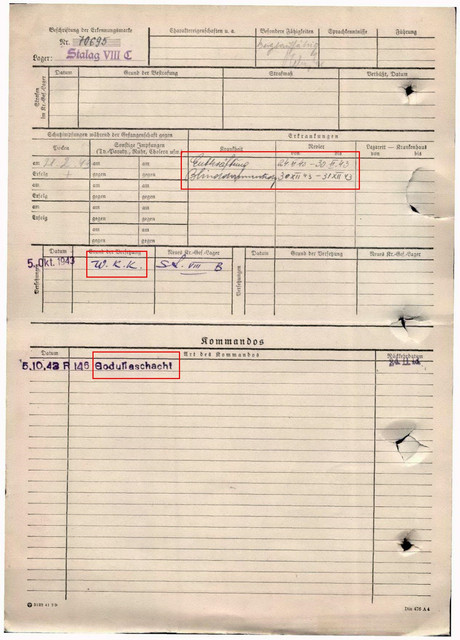 Beschriftung der Erkennungsmarke
Nr. 70695
Lager: Stalag VIII C
Charaktereigenschaften u. a.
Besondere Fähigkeiten
Sprachkenntnisse
Führung
Strafen im Kr.-Gef.-Lager
Datum
Grund der Bestrafung
Strafmaß
Verbüßt, Datum
Schutzimpfungen während der Gefangenschaft gegen
Erkrankungen
Pocken
Sonstige Impfungen
(Ty.-Paraty., Ruhr, Cholera usw.)
Krankheit
Revier
von bis
Lazarett — Krankenhaus
von bis
am 28.2.
am
am
Erfolg +
gegen
gegen
24.II 43 - 30.II.43
30 XII 43 - 31 XII 43
am
am
am
Erfolg
gegen
gegen
am
am
am
Erfolg
gegen
gegen
am
am
gegen
gegen
Versetzungen
Datum
Grund der Versetzung
Neues Kr.-Gef.-Lager
Datum
Grund der Versetzung
Neues Kr.-Gef.-Lager
5. Okt. 1943
W. K. K.
VIII B
Kommandos
Datum
Art des Kommandos
Rückkehrdatum
5.10.43 R 146 Bodullaschacht
Din 476 A 4